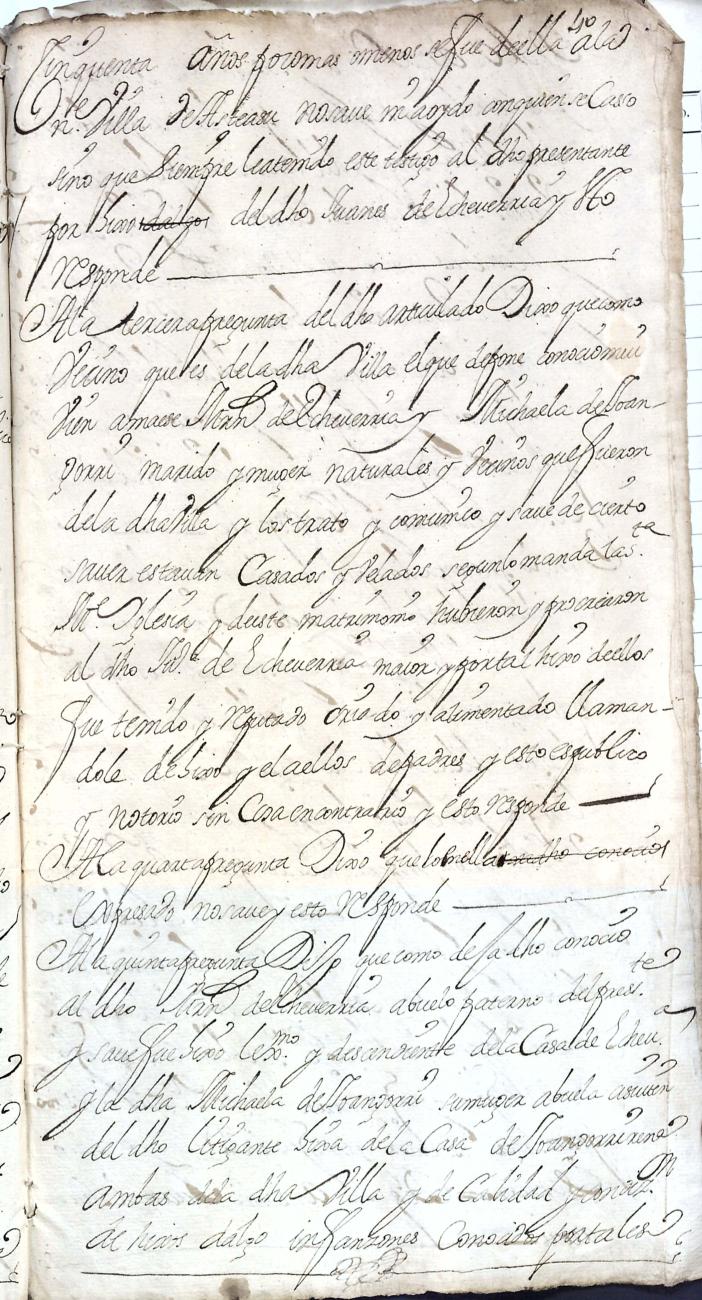 Cinquenta años poco mas o menos se fue de ella a la
Vn.e Villa de Asteasu no save ni a oydo con quien se Casso
sino que siempre le a tenido este testigo al dho presentante
por hixo del dho Juanes de Echeverria y esto
responde
A la tercera pregunta del dho articulado Dixo que como
Vecino que es de la dha Villa el que depone conocio mui
Vien a maese Mrn de Echeverria y Michaela de Yban-
gorri marido y muger naturales y Vecinos que fueron
de la dha Villa y los trato y comunico y save de cierto
saver estavan Casados y Velados segun lo manda la S.ta
M.e Yglesia y de este matrimonio hubieron y procrearon
al dho Ju.s de Echeverria maior y por tal hixo de ellos
fue tenido y reputado criado y alimentado llaman-
dole de hixo y el a ellos de padres y esto es publico
y notorio sin Cosa en contrario y esto responde
A la quarta pregunta Dixo que lo en ella
expresado no save y esto responde
A la quinta pregunta Dijo que como dessa dho conocio
al dho Mrn de Echeverria abuelo paterno del pres.te
y save fue hixo lex.mo y descendiente de la Casa de Echeu.a
y la dha Michaela de Ybangorri su muger abuela assi tan
del dho litigante hixa de la Casa de Ybangorri
ambas de la dha Villa y de Calidad y
de hixos dalgo infanzones Conocidos por tales